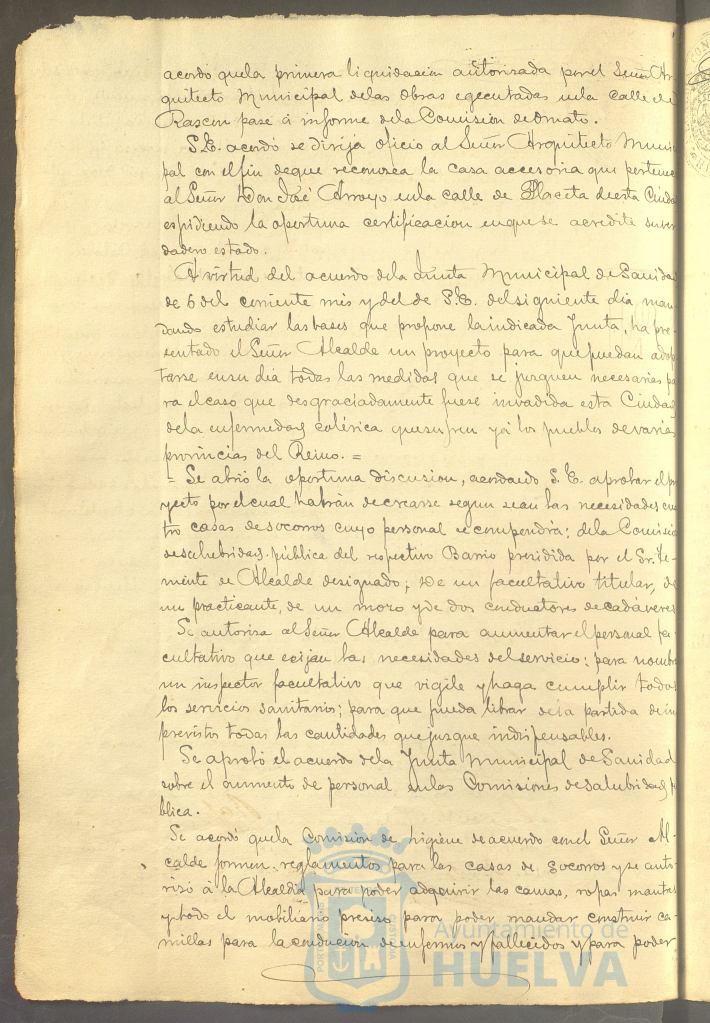 acordó quela primera liquidacion autorizada porel Señor Ar
quitecto Municipal delas Obras egecutadas enla calle de
Rascon pase á informe dela Comision de Ornato.
S.E. acordó se dirija oficio al Señor Arquitecto Munici
pal con el fin deque reconozca la casa accesoria que pertenece
al Señor Don José Arroyo enla calle de Placeta deesta Ciudad
espidiendo la oportuna certificacion enque se acredite suver
dadero estado.
A virtud del acuerdo dela Junta Municipal de Sanidad
de 6 del corriente mes y del de S.E. del siguiente dia, man
dando estudiar las bases que propone la indicada Junta, ha pre-
sentado el Señor Alcalde un proyecto para que puedan adop
tarse ensu dia todas las medidas que se juzguen necesarias pa
ra el caso que desgraciadamente fuese invadida esta Ciudad
dela enfermedad colérica quesufren yá los pueblos devarias
provincias del Reino. =
= Se abrió la oportuna discusion, acordando S.E. aprobar el pro
yecto por el cual habrán decrearse segun sean las necesidades cua
tro casas desocorros cuyo personal se compondrá: dela Comision
desalubridad pública del respectivo Barrio presidida por el Sr. Te-
niente de Alcalde designado; De un facultativo titular, de
un practicante, de un mozo y de dos conductores de cadáveres
Se autoriza al Señor Alcalde para aumentar el personal fa-
cultativo que exijan las necesidades del servicio; para nombrar
un inspector facultativo que vigile y haga cumplir todos
los servicios sanitarios; para que pueda librar dela partida de im
previstos todas las cantidades que juzgue indispensables.
Se aprobó el acuerdo dela Junta Municipal de Sanidad
sobre el aumento de personal enlas Comisiones desalubridad pú
blica.
Se acordó quela Comision de higiene de acuerdo conel Señor Al-
calde formen reglamentos para las casas de Socorros y se auto-
rizó á la Alcaldia para poder adquirir las camas, ropas mantas
y todo el mobiliario preciso para poder mandar construir ca-
millas para la conducion de enfermos y fallecidos y para poder
Ayuntamiento de
HUELVA